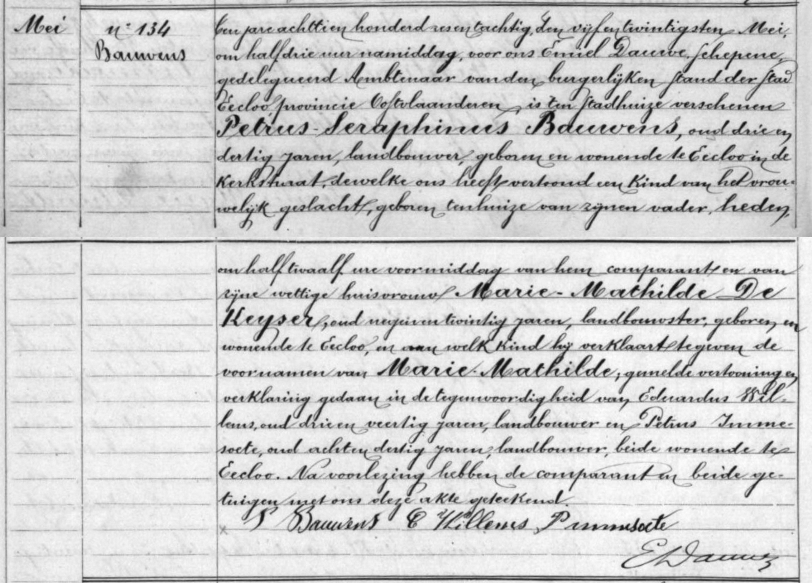 Mei
nr 134
Bauwens
Een jare achttien honderd zesentachtig, den vijfentwintigsten Mei,
om half drie uur namiddag, voor ons Emiel Dauwe, schepene,
gedelegueerd Ambtenaar van den burgerlijken stand der stad
Eecloo provincie Oostvlaanderen, is ten stadhuize verschenen
Petrus-Seraphinus Bauwens, oud drie en
dertig jaren, landbouwer, geboren en wonende te Eecloo in de
Kerkstraat, dewelke ons heeft vertoond een kind van het vrou-
welijk geslacht, geboren ten huize van zijnen vader, heden
om half twaalf ure voormiddag van hem comparant en van
zijne wettige huisvrouw Marie-Mathilde De
Keyser, oud negen en twintig jaren, landbouwster, geboren en
wonende te Eecloo, en aan welk kind hij verklaart te geven de
voornamen van Marie-Mathilde; gemelde vertooning en
verklaring gedaan in de tegenwoordigheid van Eduardus Wil-
lems, oud drie en veertig jaren, landbouwer en Petrus Imme-
soete, oud acht en dertig jaren, landbouwer, beide wonende te
Eecloo. Na voorlezing hebben de comparant en beide ge-
tuigen met ons deze akte geteekend.
P Bauwens E Willems P immesoete
E Dauwe